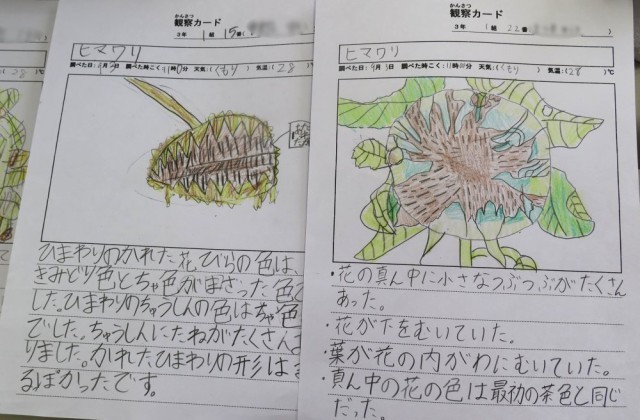 かんさつ
観察カード
3年 1組 15番(
ヒマワリ
調べた日:9月5日 調べた時こく:11時0分 天気:(くもり) 気温:(28)℃
ひまわりのかれた花びらの色は、
きみどり色とちゃ色がまざった色で
した。ひまわりのちゅうしんの色はちゃ色
でした。ちゅうしんにたねがたくさんあ
りました。かれたひまわりの形はま
るぽかったです。
かんさつ
観察カード
3年 1組 22番 )
ヒマワリ
調べた日:9月5日 調べた時こく:11時 分 天気:(くもり) 気温:(28)℃
・花の真ん中に小さなつぶつぶがたくさん
あった。
・花が下をむいていた。
・葉が花の内がわにむいていた。
・真ん中の花の色は最初の茶色と同じ
だった。